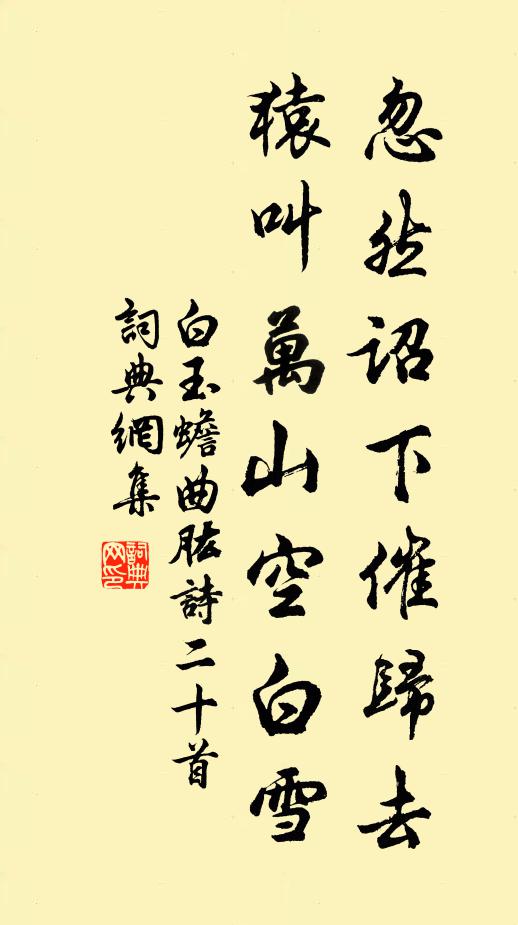 忽然詔下催歸去
猿叫萬山空白雪
白玉蟾曲肱詩二十首
詞典網集
詞典網印